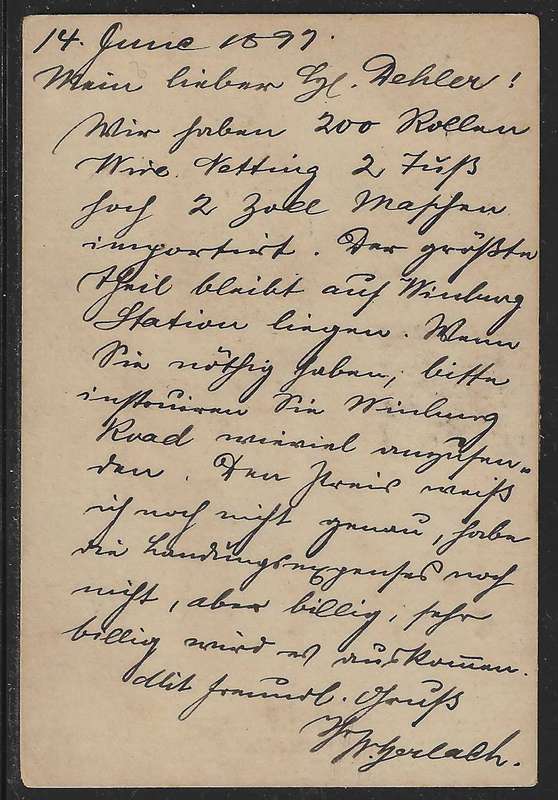 14. June 1897.
Mein lieber Hl. Dehler!
Wir haben 200 Rollen
Wire Netting 2 Fuß
hoch 2 Zoll Maschen
importirt. Der größte
Theil bleibt auf Winburg
Station liegen. Wenn
Sie nöthig haben, bitte
instruiren Sie Winburg
Road wieviel anzusen-
den. Den Preis weiß
ich noch nicht genau, habe
die Landungsexpenses noch
nicht, aber billig, sehr
billig wird es auskommen.
Mit freundl. Gruß
Ihr W. Gerlach.